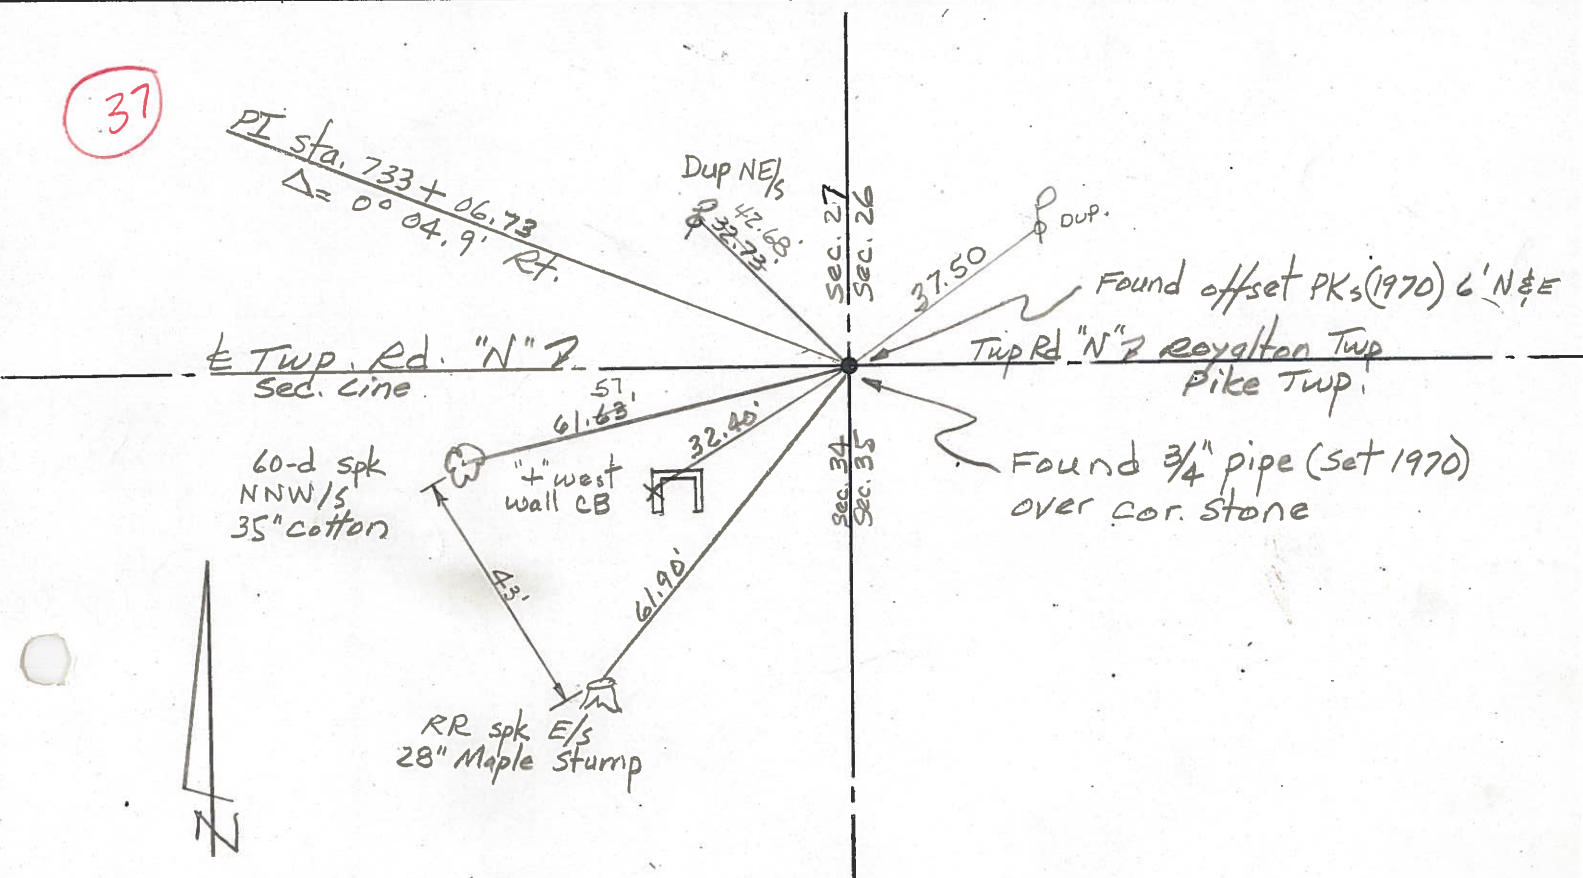 37
PI sta. 733 + 06.73
Δ= 0° 04.9' Rt.
Dup NE/s
42.68'
32.73'
Sec. 27
Sec. 26
37.50
DUP.
Found offset PKs (1970) 6' N & E
℄ Twp. Rd. "N"
Sec. Line
Twp Rd "N" Royalton Twp
Pike Twp.
57
61.63'
32.40'
60-d spk
NNW/s
35" cotton
"+" west
wall CB
Sec. 34
Sec. 35
Found 3/4" pipe (Set 1970)
over cor. stone
43'
61.90'
RR spk E/s
28" Maple Stump
N